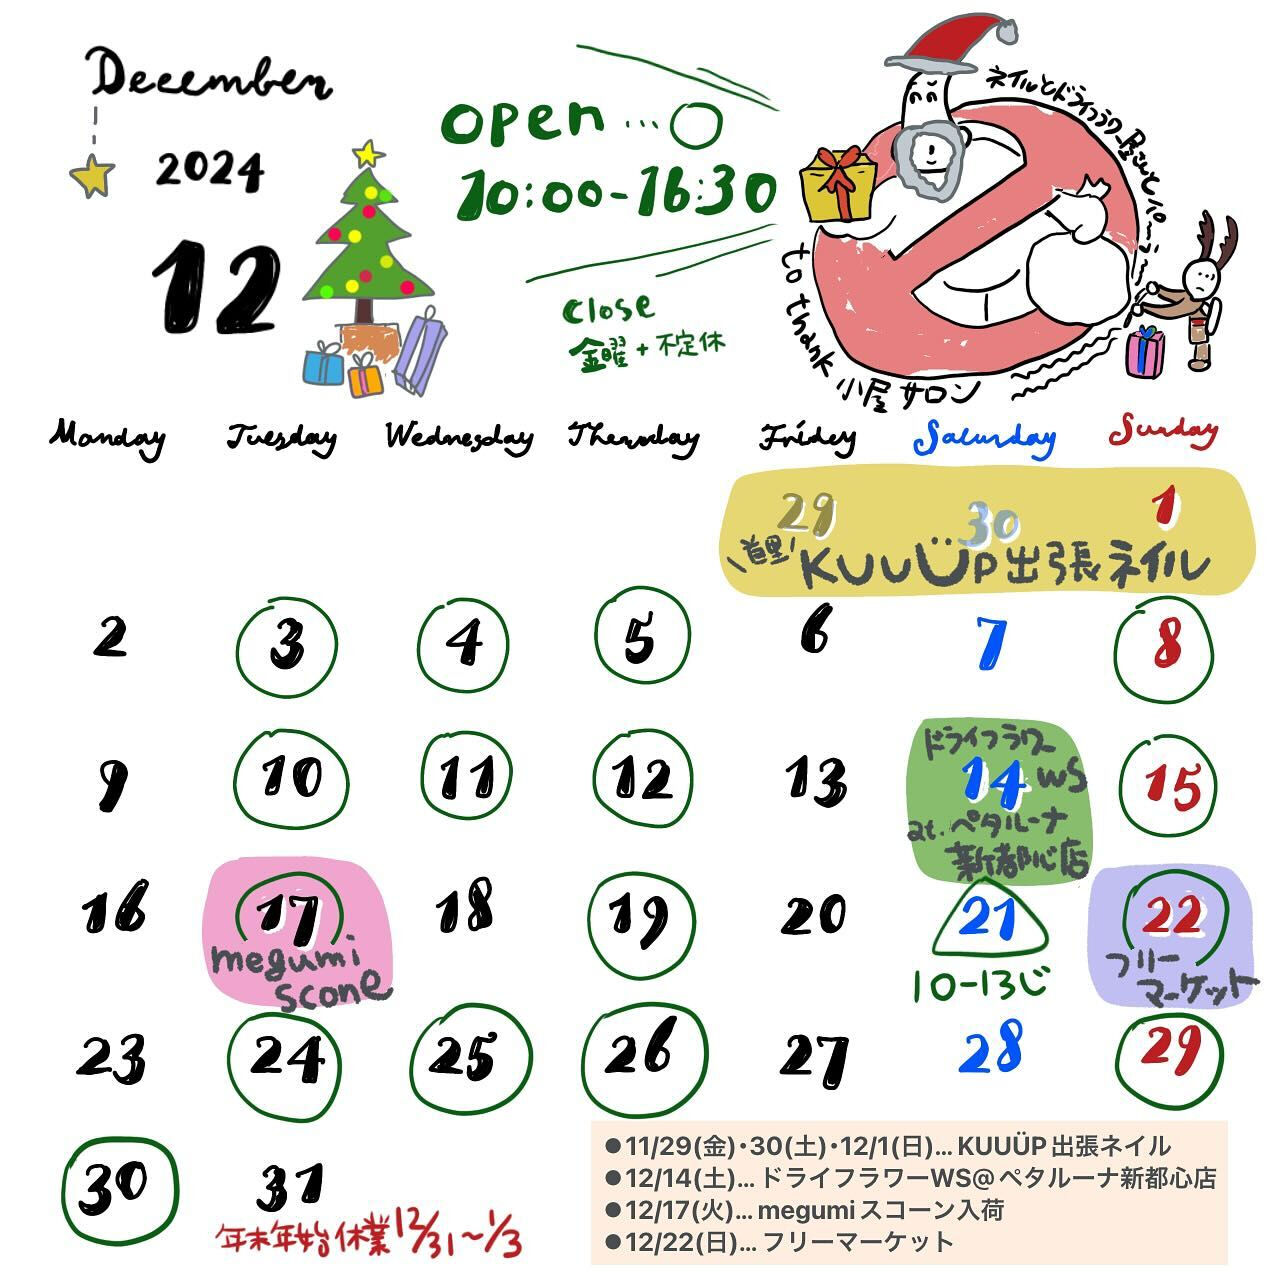 December
2024
12
open…○
10:00-16:30
close
金曜+不定休
ネイルとドライフラワー屋さんとパーラー
to thank 小屋サロン
Monday Tuesday Wednesday Thursday Friday Saturday Sunday
29 30 1
\首里/ KUUÜP出張ネイル
2 3 4 5 6 7 8
ドライフラワー
9 10 11 12 13 14 WS 15
at.ペタルーナ
新都心店
16 17 18 19 20 21 22
megumi
scone
10-13じ
フリー
マーケット
23 24 25 26 27 28 29
30 31
年末年始休業12/31~1/3
●11/29(金)・30(土)・12/1(日)… KUUÜP出張ネイル
●12/14(土)… ドライフラワーWS@ペタルーナ新都心店
●12/17(火)… megumiスコーン入荷
●12/22(日)… フリーマーケット